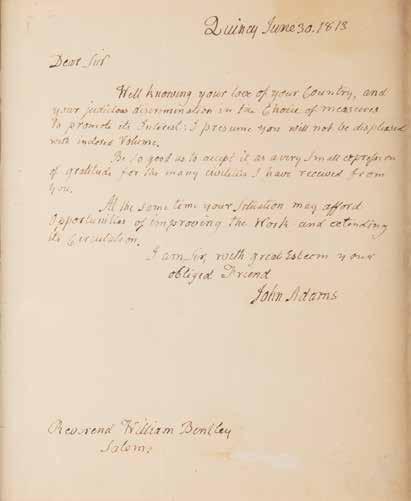 Quincy June 30. 1813
Dear Sir
Well knowing your love of your Country, and
your judicious discrimination in the Choice of measures
to promote its Interest: I presume you will not be displeased
with inclosed Volume.
Be so good as to accept it as a very small expression
of gratitude for the many civilities I have received from
you.
At the same time your Situation may afford
Opportunities of improving the Work and extending
its Circulation.
I am Sir, with great Esteem your
obliged Friend
John Adams
Reverend William Bentley
Salem.